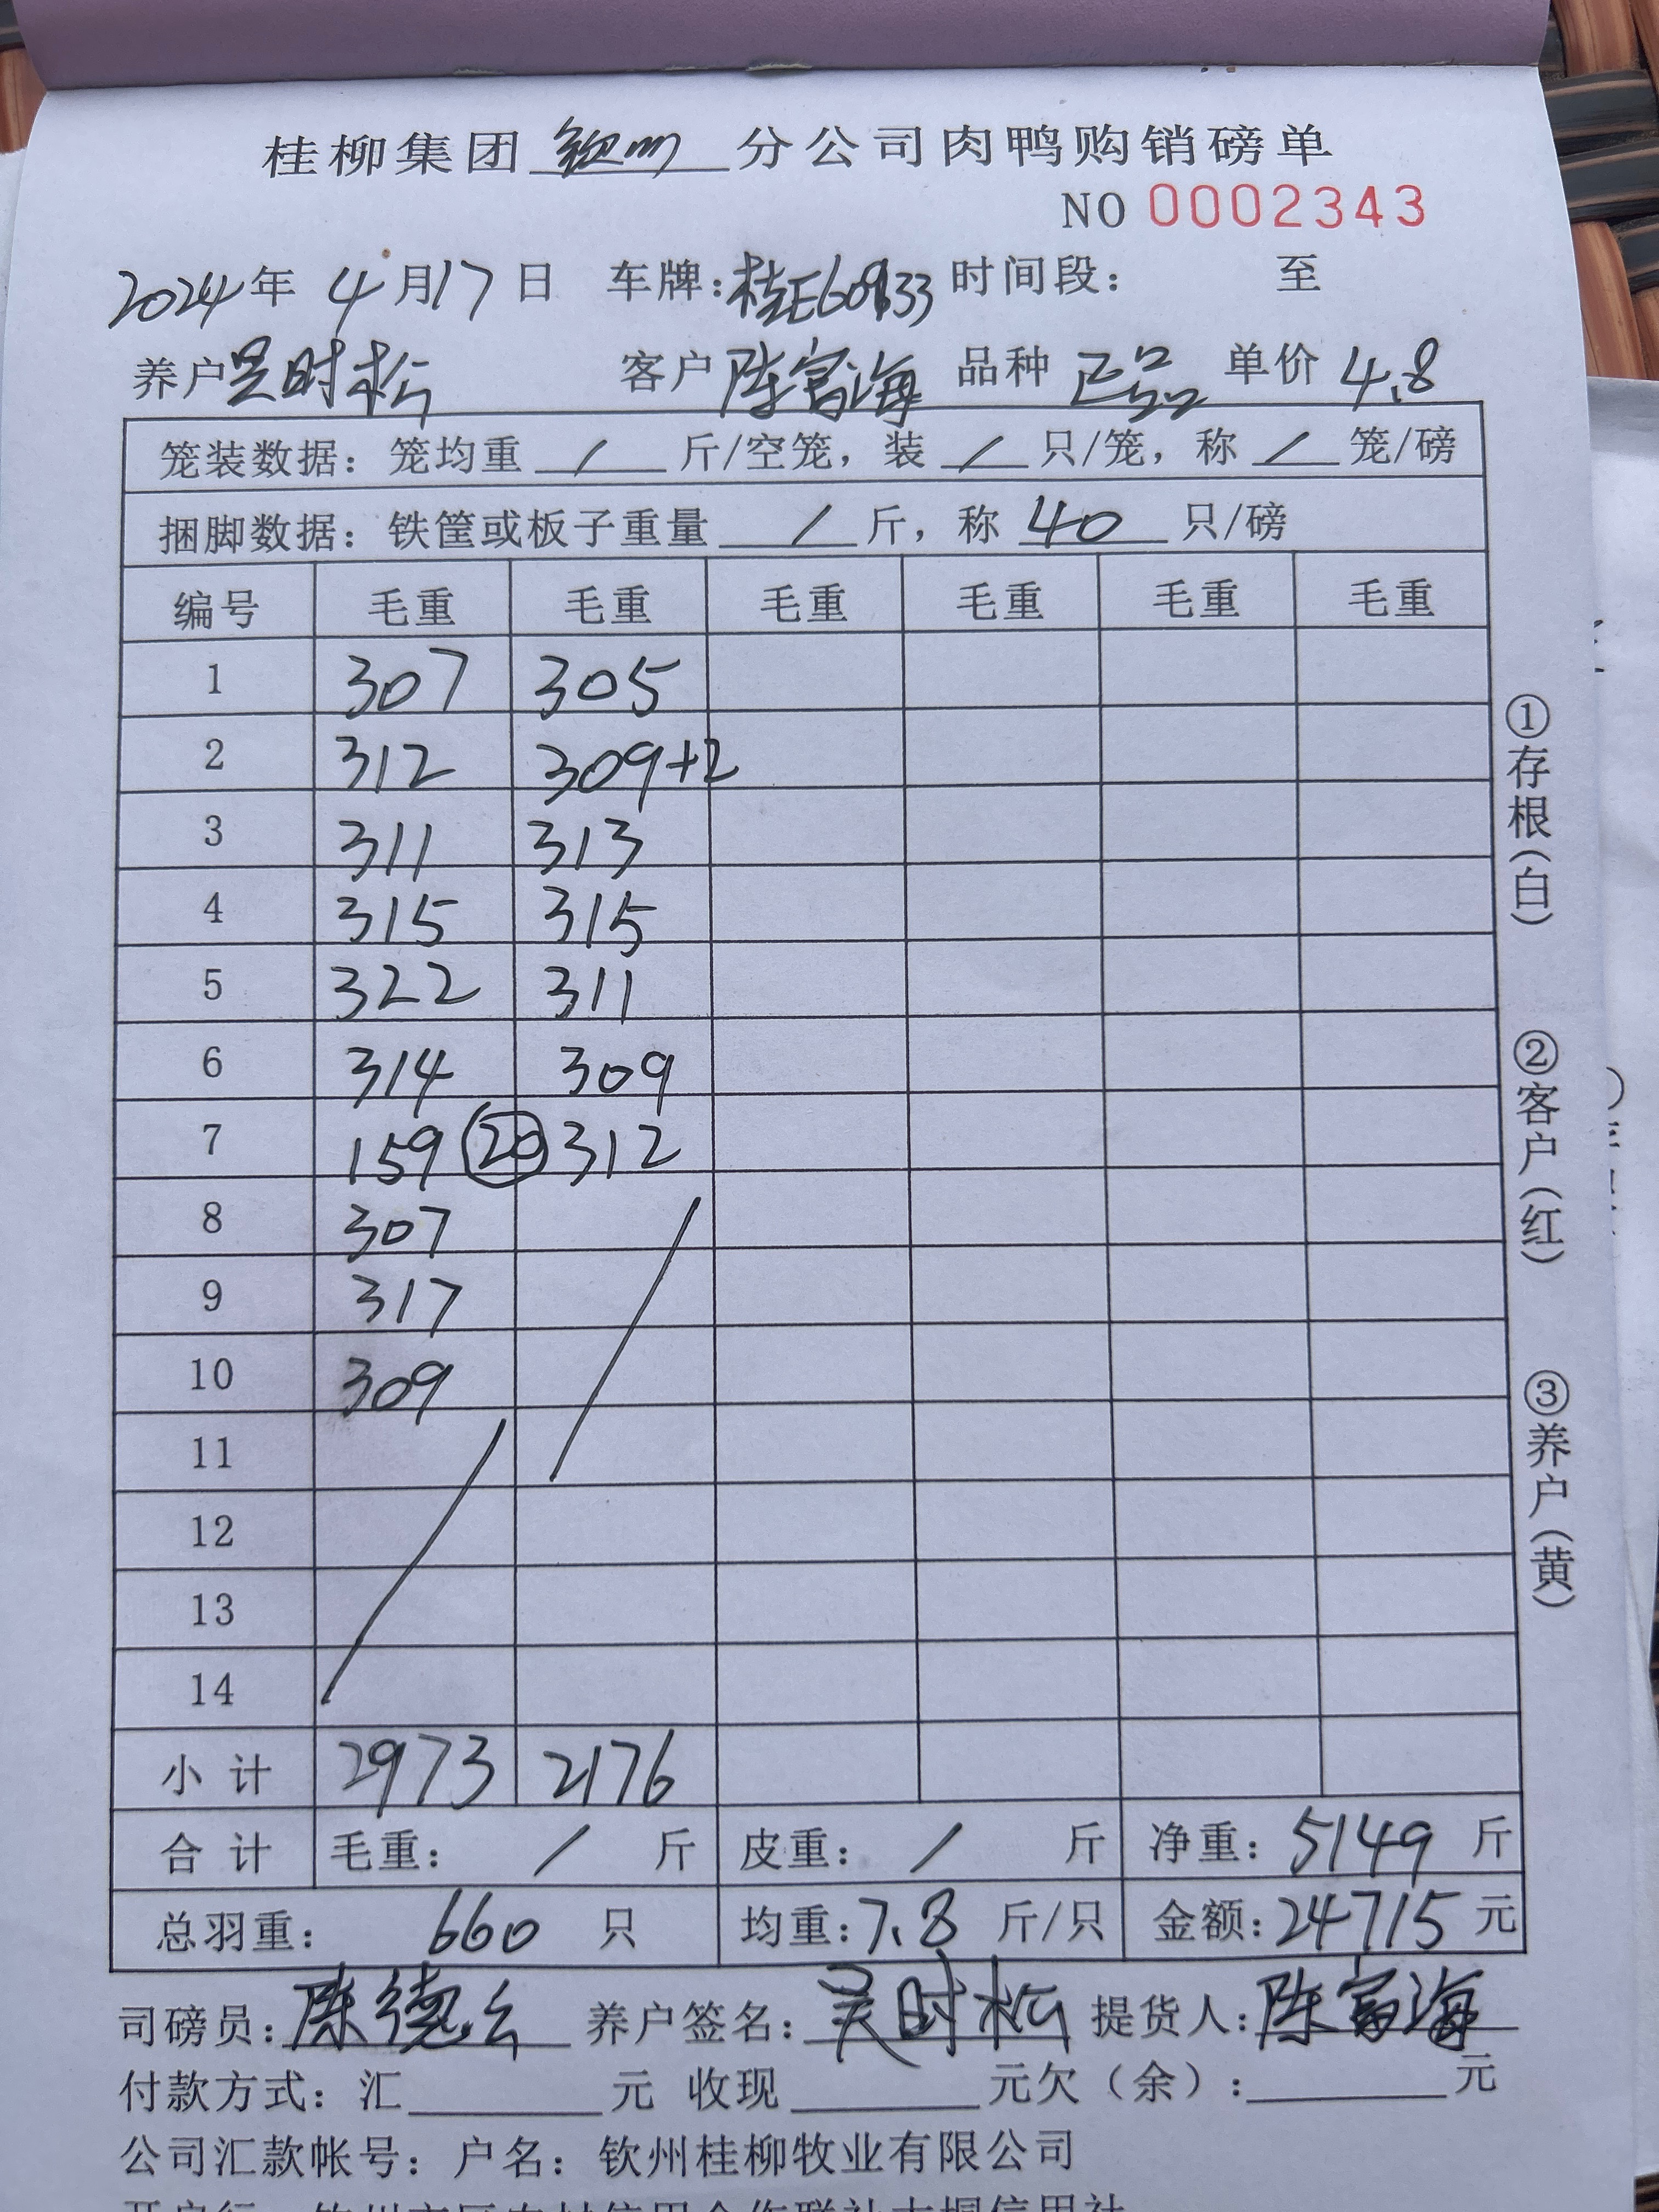 桂柳集团 钦州 分公司肉鸭购销磅单
NO 0002343
2024年 4月17日 车牌:桂E60933 时间段: 至
养户 吴时松 客户 陈富海 品种 正品 单价 4.8
笼装数据: 笼均重 / 斤/空笼, 装 / 只/笼, 称 / 笼/磅
捆脚数据: 铁筐或板子重量 / 斤, 称 40 只/磅
编号 毛重 毛重 毛重 毛重 毛重 毛重
1 307 305
2 312 309+2
3 311 313
4 315 315
5 322 311
6 314 309
7 159 ⑳ 312
8 307
9 317
10 309
11
12
13
14
小计 2973 2176
合计 毛重: / 斤 皮重: / 斤 净重: 5149 斤
总羽重: 660 只 均重:7.8 斤/只 金额:24715 元
司磅员: 陈德 养户签名: 吴时松 提货人: 陈富海
付款方式: 汇 元 收现 元欠(余): 元
公司汇款帐号: 户名: 钦州桂柳牧业有限公司
①存根(白)
②客户(红)
③养户(黄)